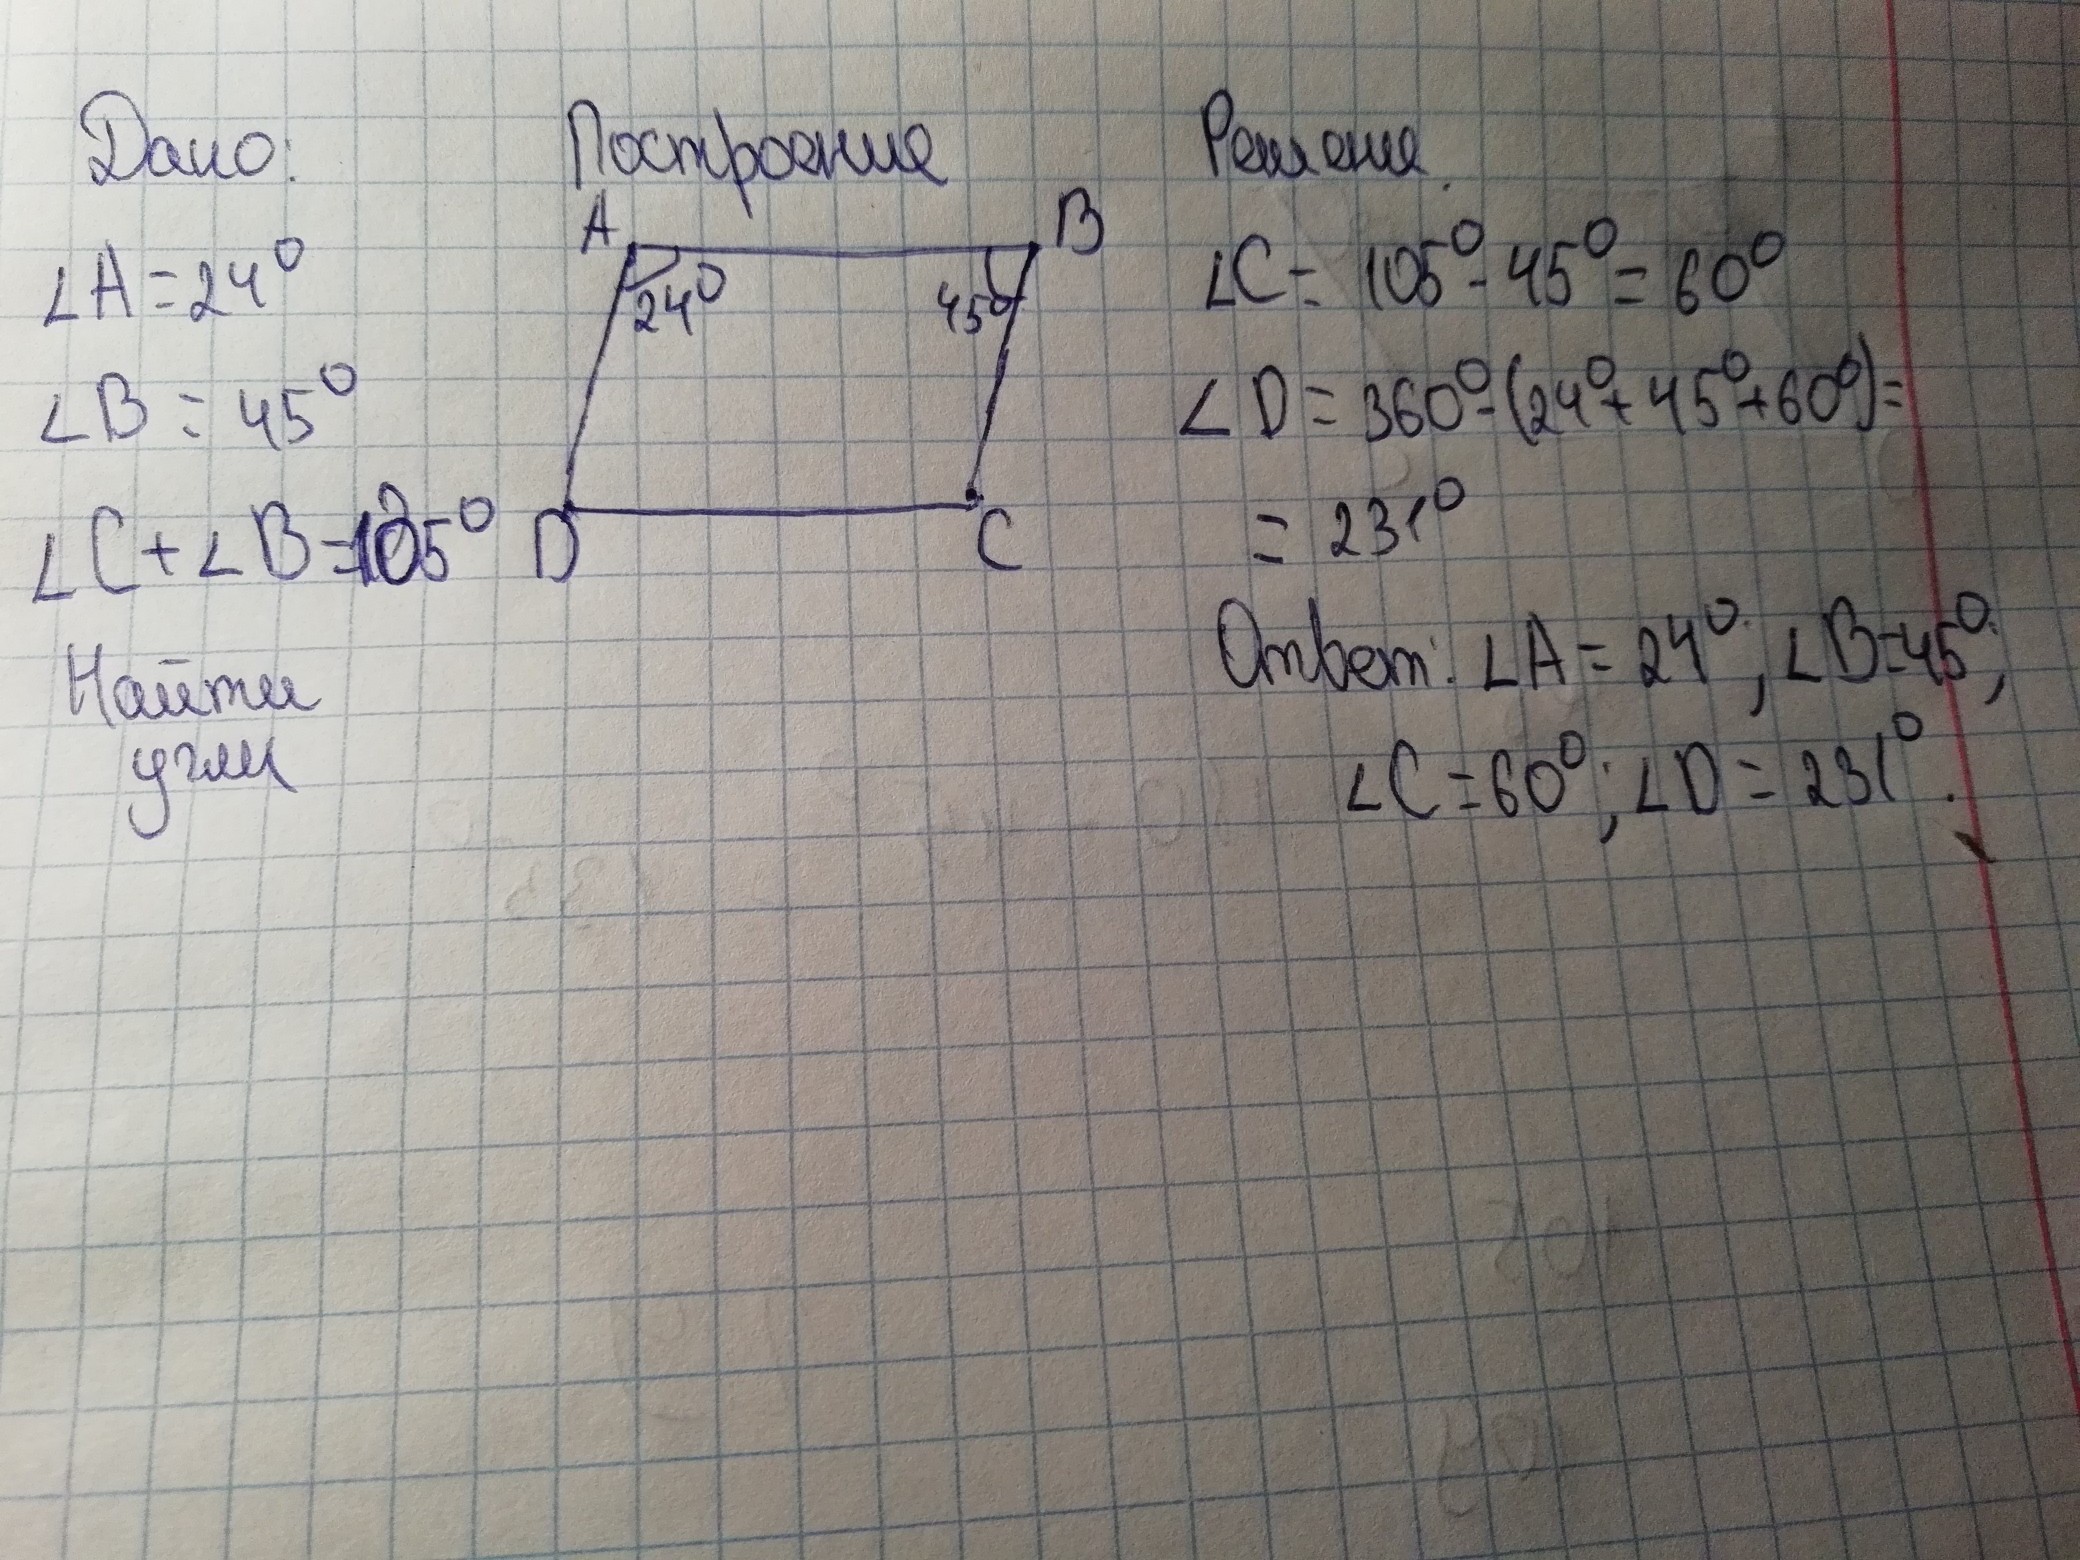 Дано:
∠A = 24°
∠B = 45°
∠C + ∠B = 105°
Найти
углы
Построение
A B
24° 45°
D C
Решение.
∠C = 105° - 45° = 60°
∠D = 360° - (24° + 45° + 60°) =
= 231°
Ответ: ∠A = 24°; ∠B = 45°;
∠C = 60°; ∠D = 231°.